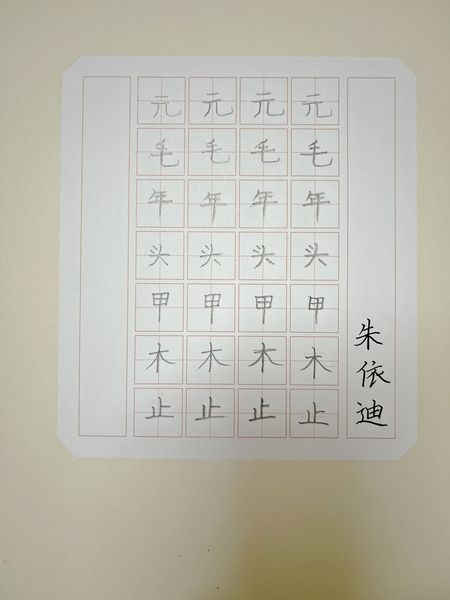 元元元元
毛毛毛毛
年年年年
头头头头
甲甲甲甲
木木木木
止止止止
朱依迪